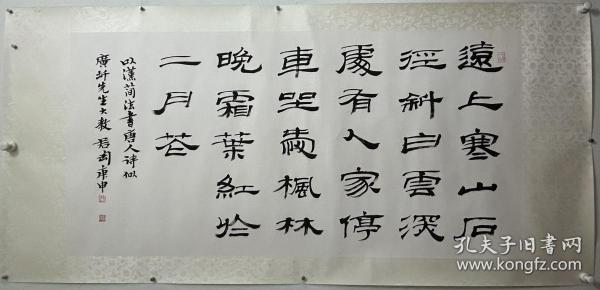 遠上寒山石
徑斜白雲深
處有人家停
車坐愛楓林
晚霜葉紅於
二月花
以漢簡法書唐人詩似
廣圻先生大教 君匋 庚申
孔夫子旧书网
www.kongfz.com